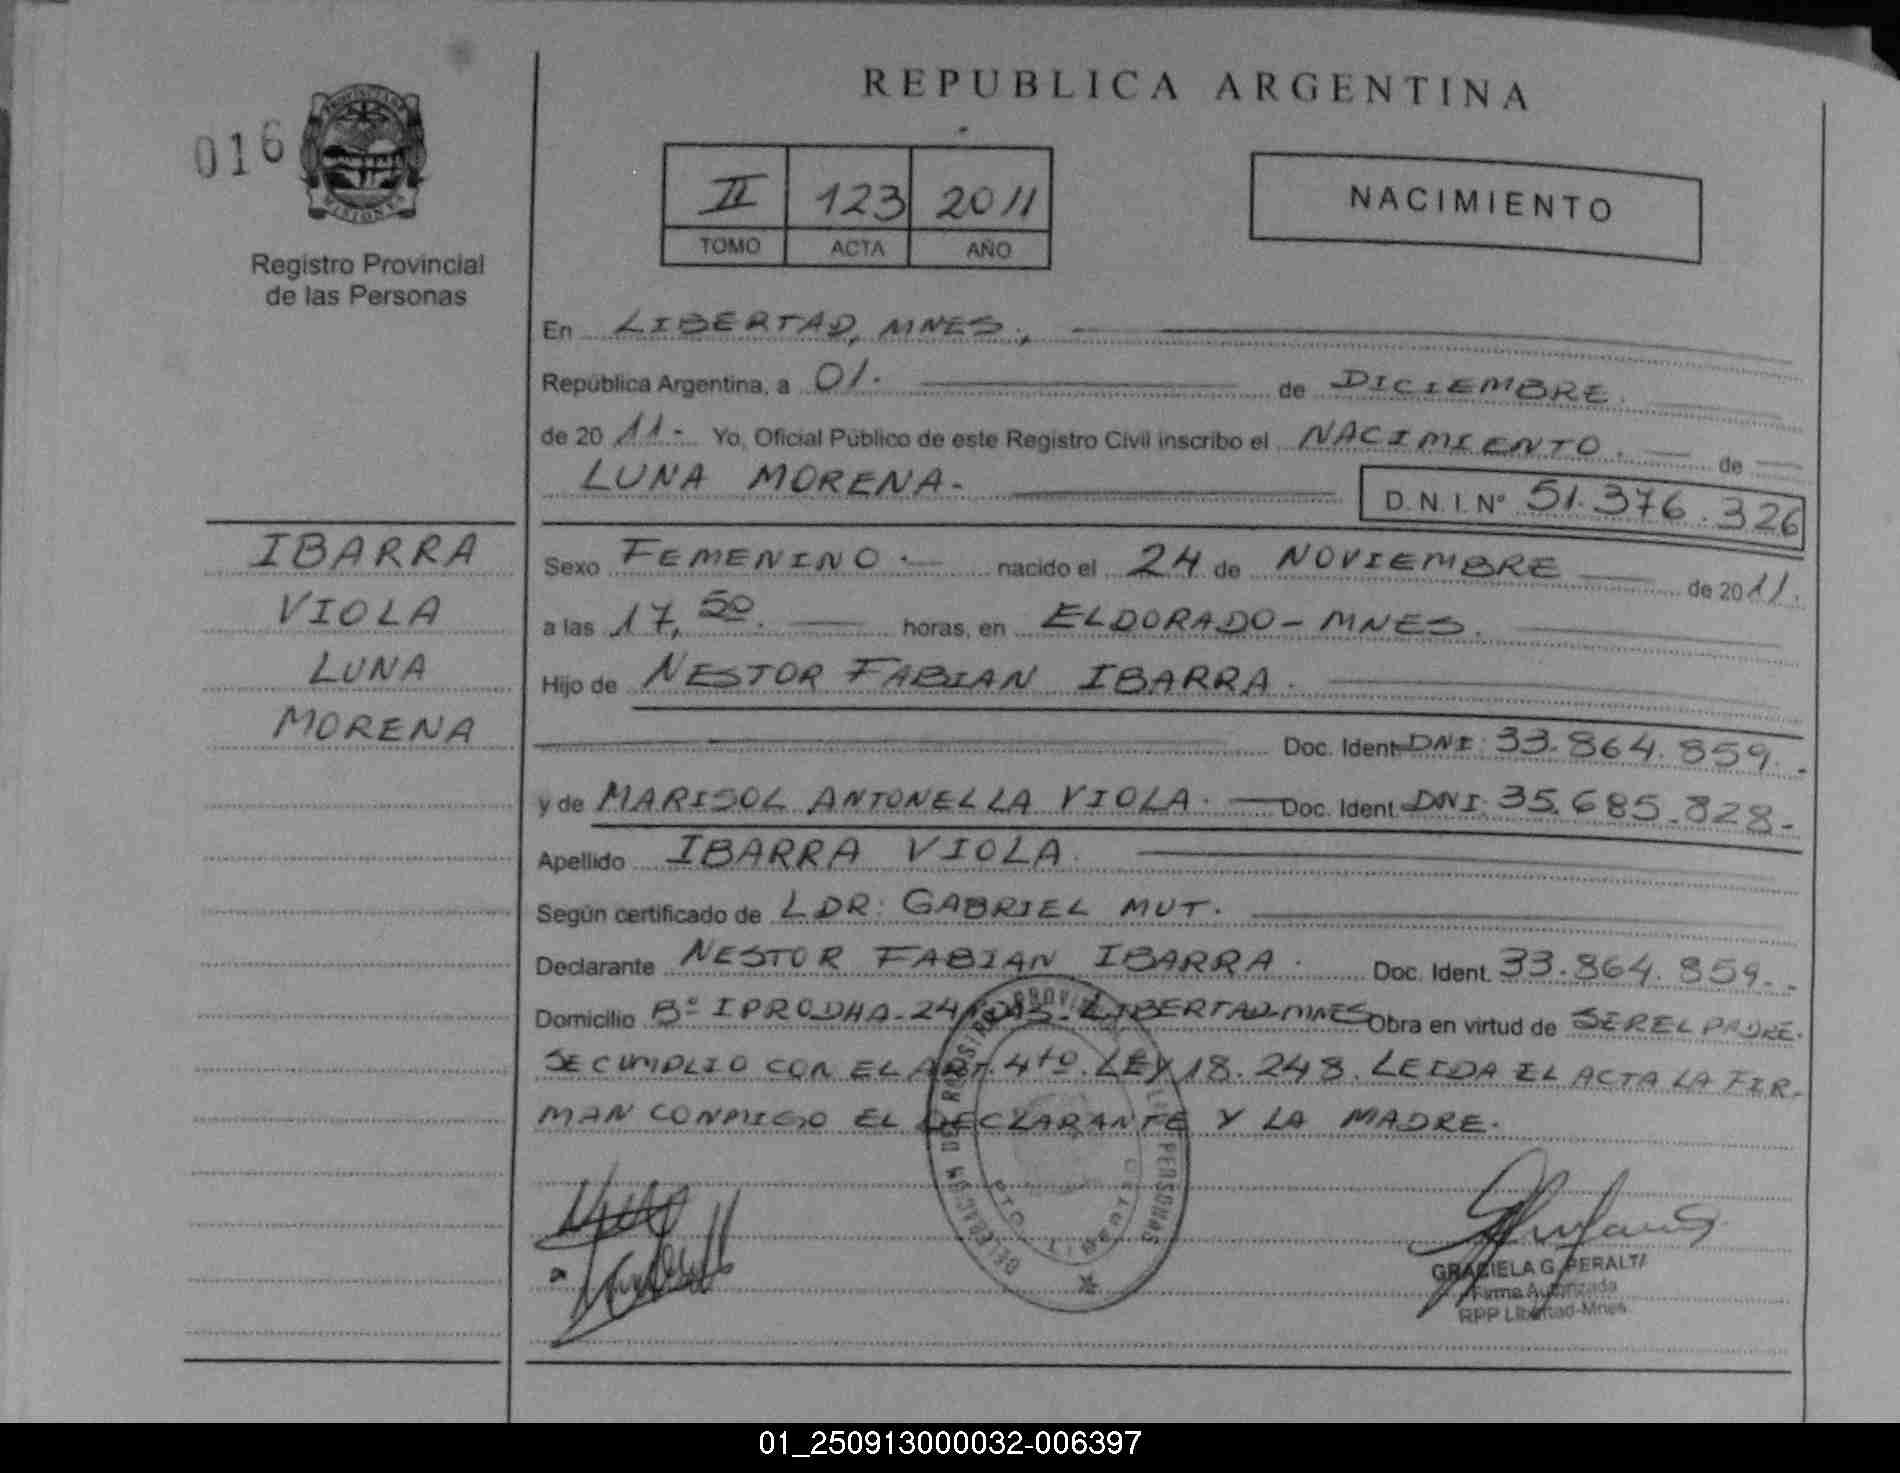 REPUBLICA ARGENTINA
016
PROVINCIA DE
MISIONES
Registro Provincial
de las Personas
II 123 2011
TOMO ACTA AÑO
NACIMIENTO
En LIBERTAD, MNES.,
República Argentina, a 01. de DICIEMBRE.
de 20 11- Yo, Oficial Público de este Registro Civil inscribo el NACIMIENTO. de
LUNA MORENA- D.N.I.Nº 51.376.326
IBARRA
VIOLA
LUNA
MORENA
Sexo FEMENINO. nacido el 24 de NOVIEMBRE de 2011.
a las 17,50. horas, en ELDORADO-MNES.
Hijo de NESTOR FABIAN IBARRA.
Doc. Ident DNI: 33.864.859.
y de MARISOL ANTONELLA VIOLA. Doc. Ident. DNI: 35.685.828-
Apellido IBARRA VIOLA.
Según certificado de LDR: GABRIEL MUT.
Declarante NESTOR FABIAN IBARRA. Doc. Ident. 33.864.859.
Domicilio Bº IPRODHA-24 LIBERTAD-MNES Obra en virtud de SER EL PADRE.
SE CUMPLIO CON EL ART. 4to. LEY 18.248. LEIDA EL ACTA LA FIR-
MAN CONMIGO EL DECLARANTE Y LA MADRE.
PERSONAS
GRACIELA G. PERALTA
Firma Autorizada
RPP Libertad-Mnes
01_250913000032-006397